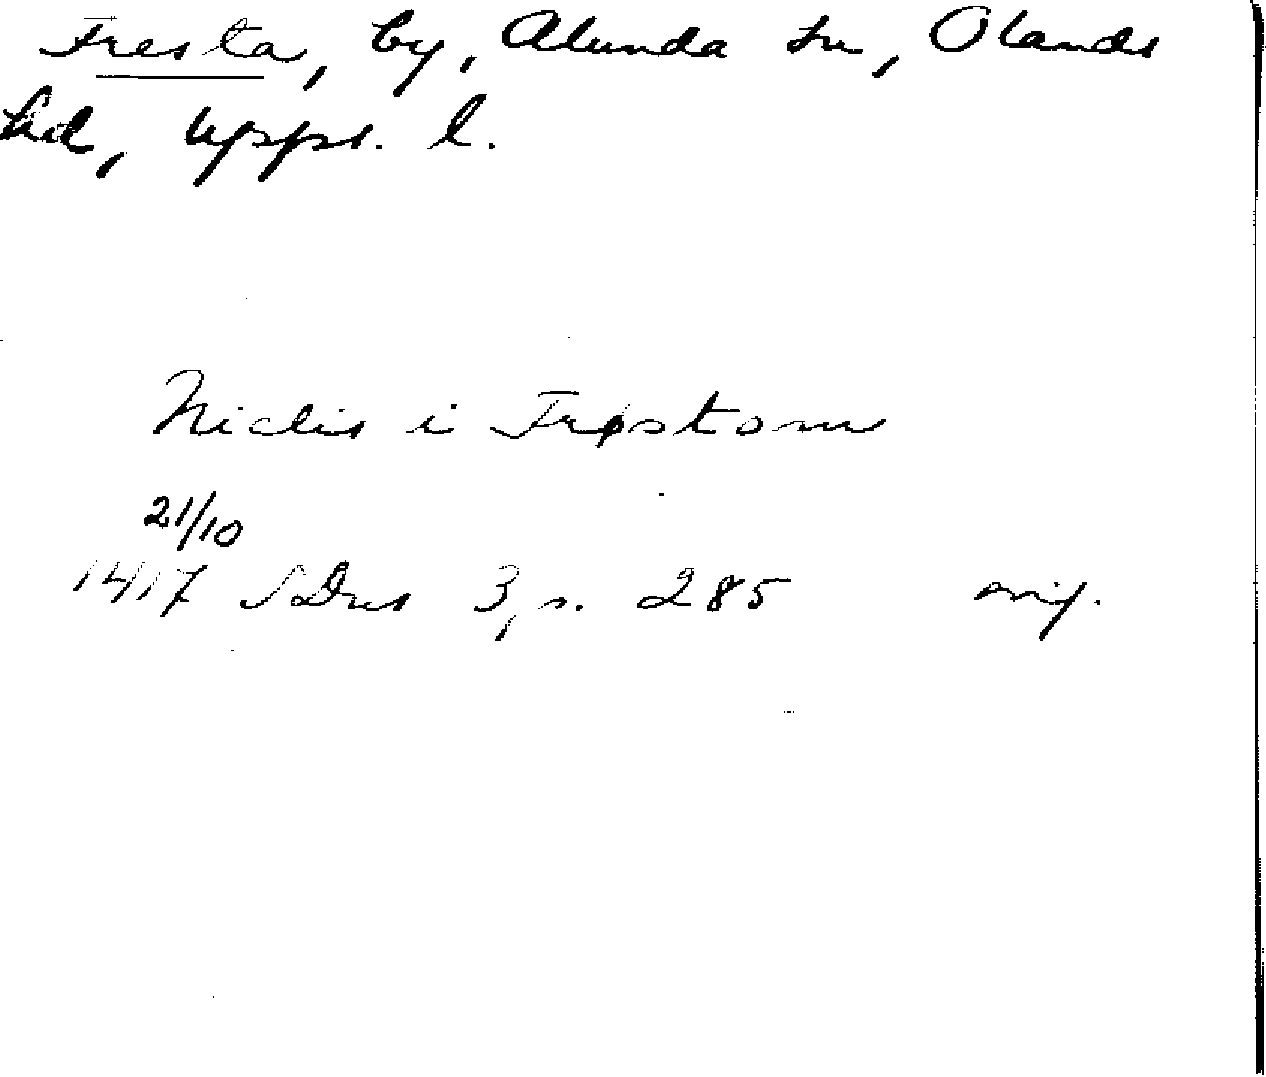 Fresta, by, Alunda sn, Olands
hd, Uppl. l.
Niclis i Frøstom
21/10
1417 SDns 3, s. 285 orig.